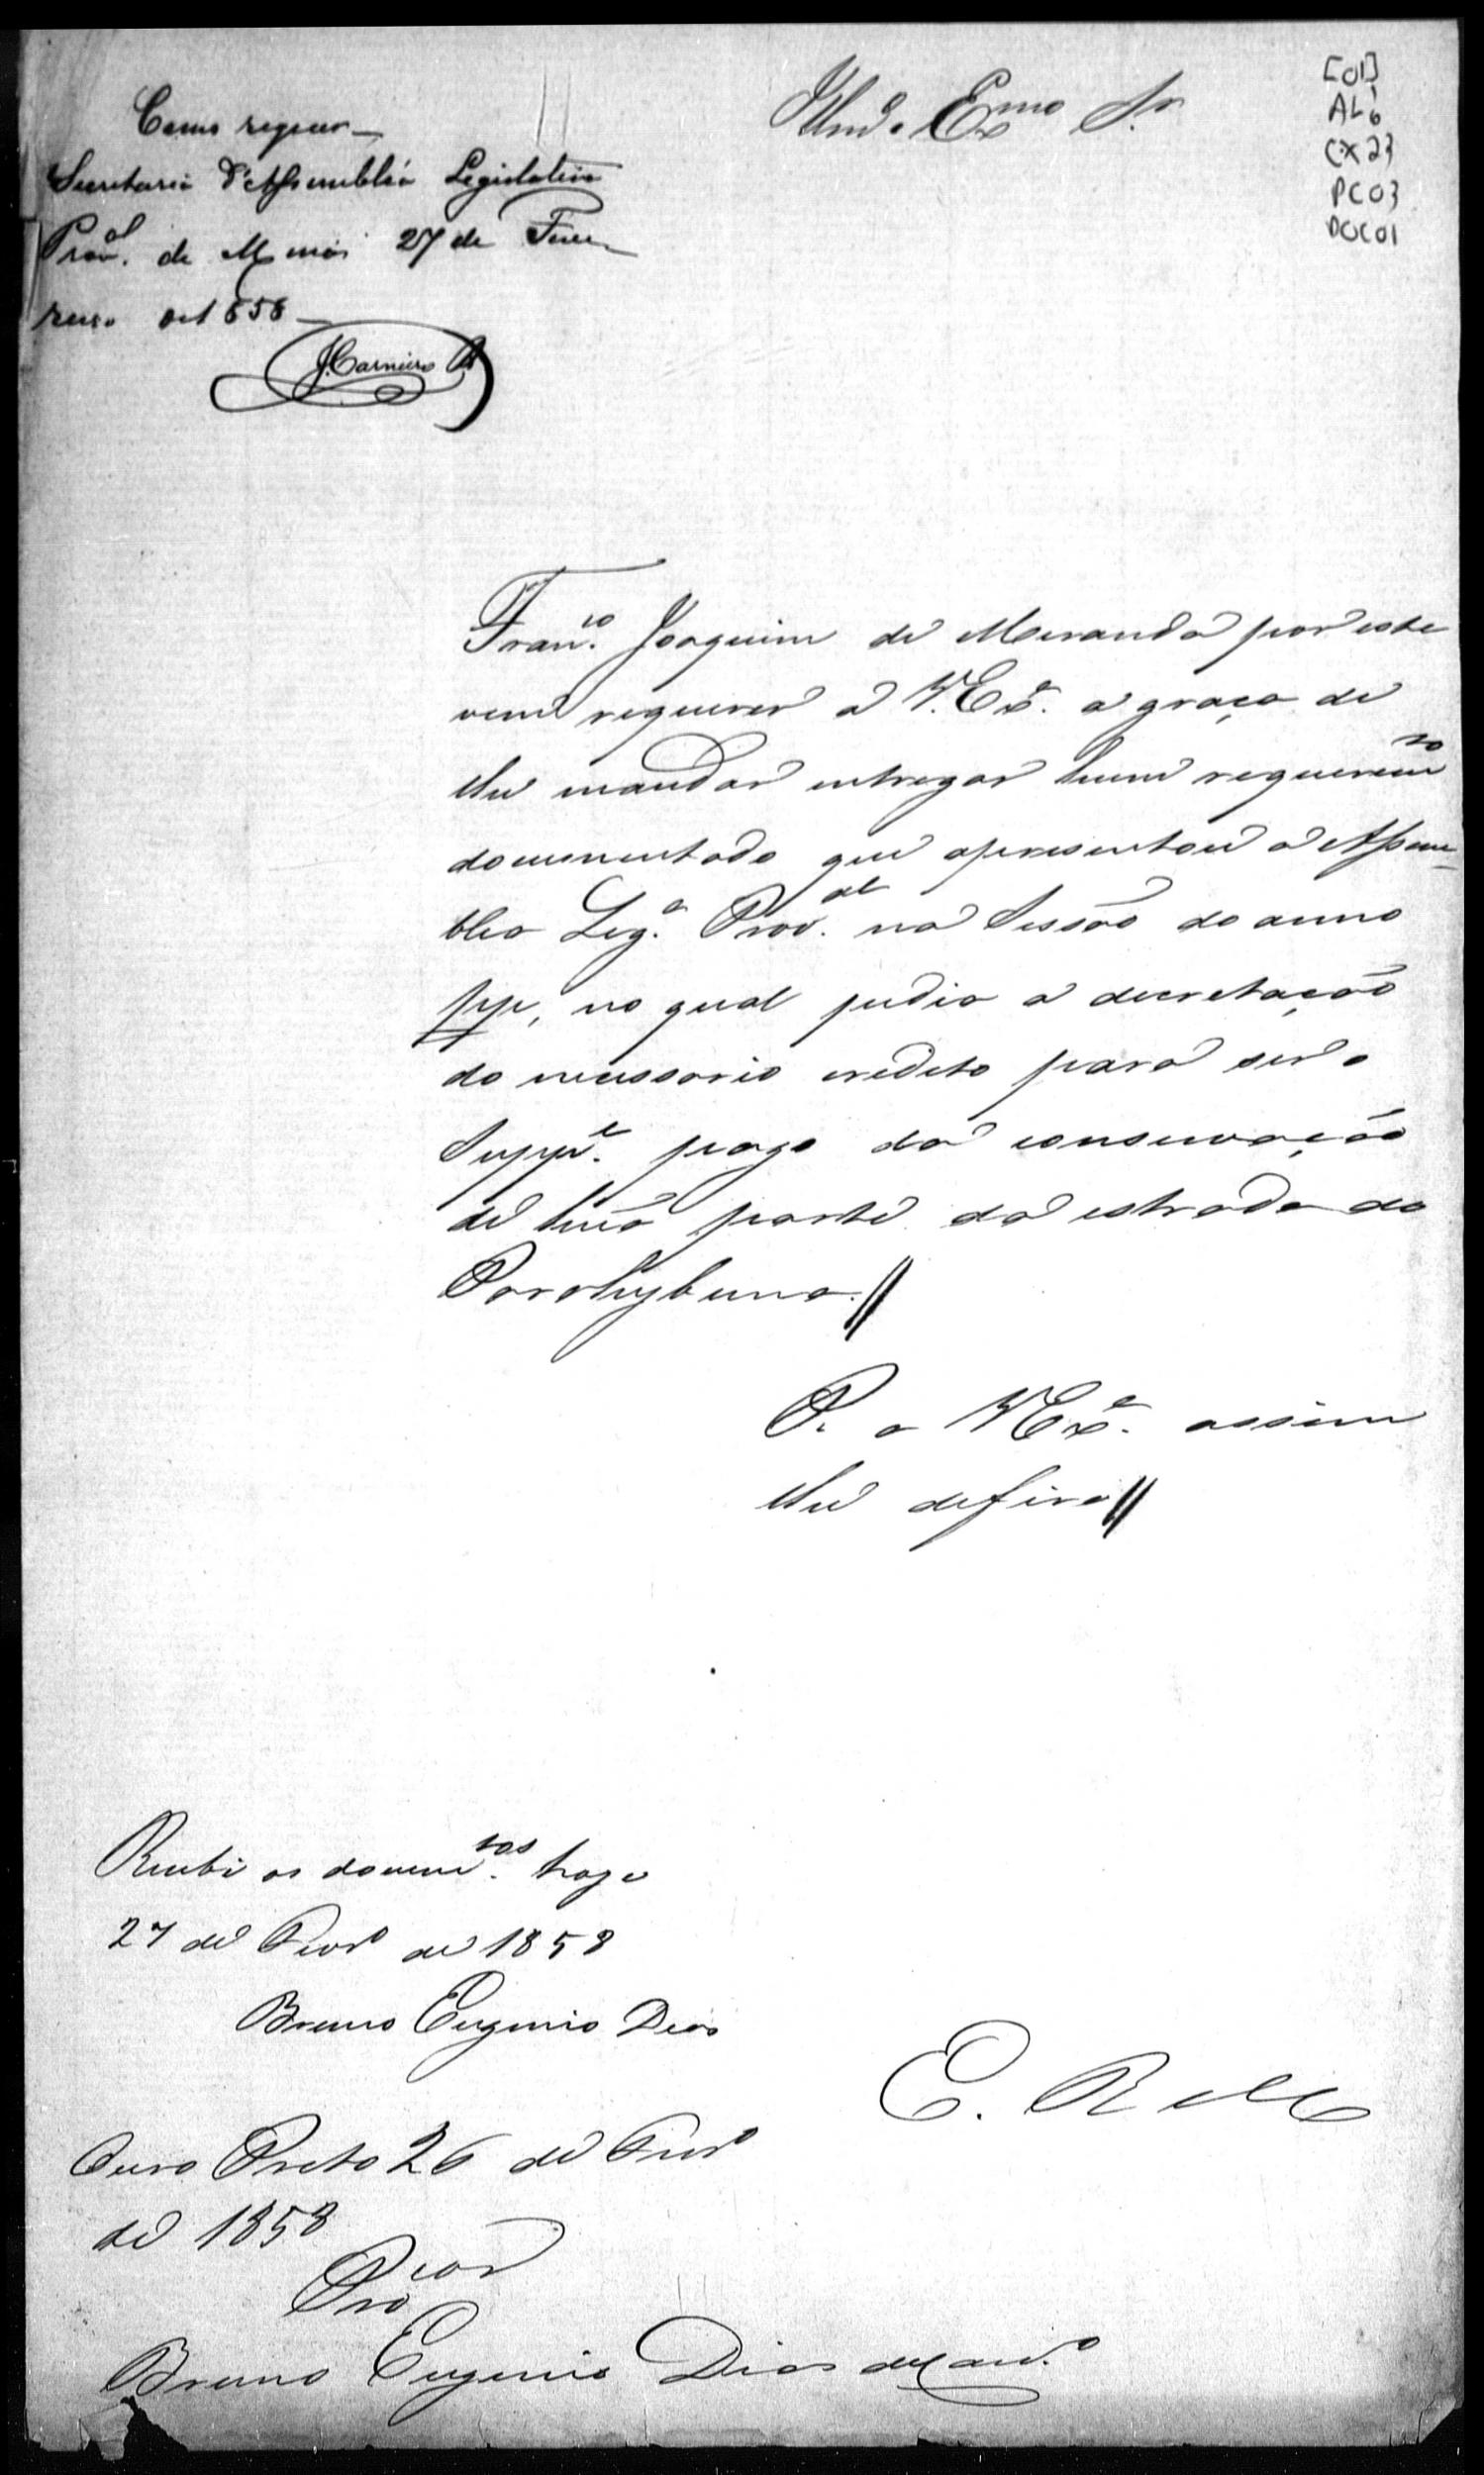 [01]
AL6
CX23
PC03
DOC01
Como requer
Secretaria d'Assembléa Legislativa
Prov.al de Minas 27 de Feve
reiro de 1858
J. Carneiro
Illmo. Exmo Sr
Fran.co Joaquim de Meranda por este
vem requerer a V. Ex.a a graça de
lhe mandar entregar hum requerim.to
documentado que apresentou a Assem
blea Leg.a Prov.al na Sessão do anno
pp, no qual pedia a decretação
do necessario credito para ser o
Supp.e pago da conservação
de hũa parte da estrada do
Parahybuna.//
P. a V Ex.a assim
lhe defira//
E. R. Mce
Recebi os docum.tos hoje
27 de Fevr.o de 1858
Bruno Eugenio Dias
Ouro Preto 26 de Fevr.o
de 1858
Procor
Bruno Eugenio Dias de